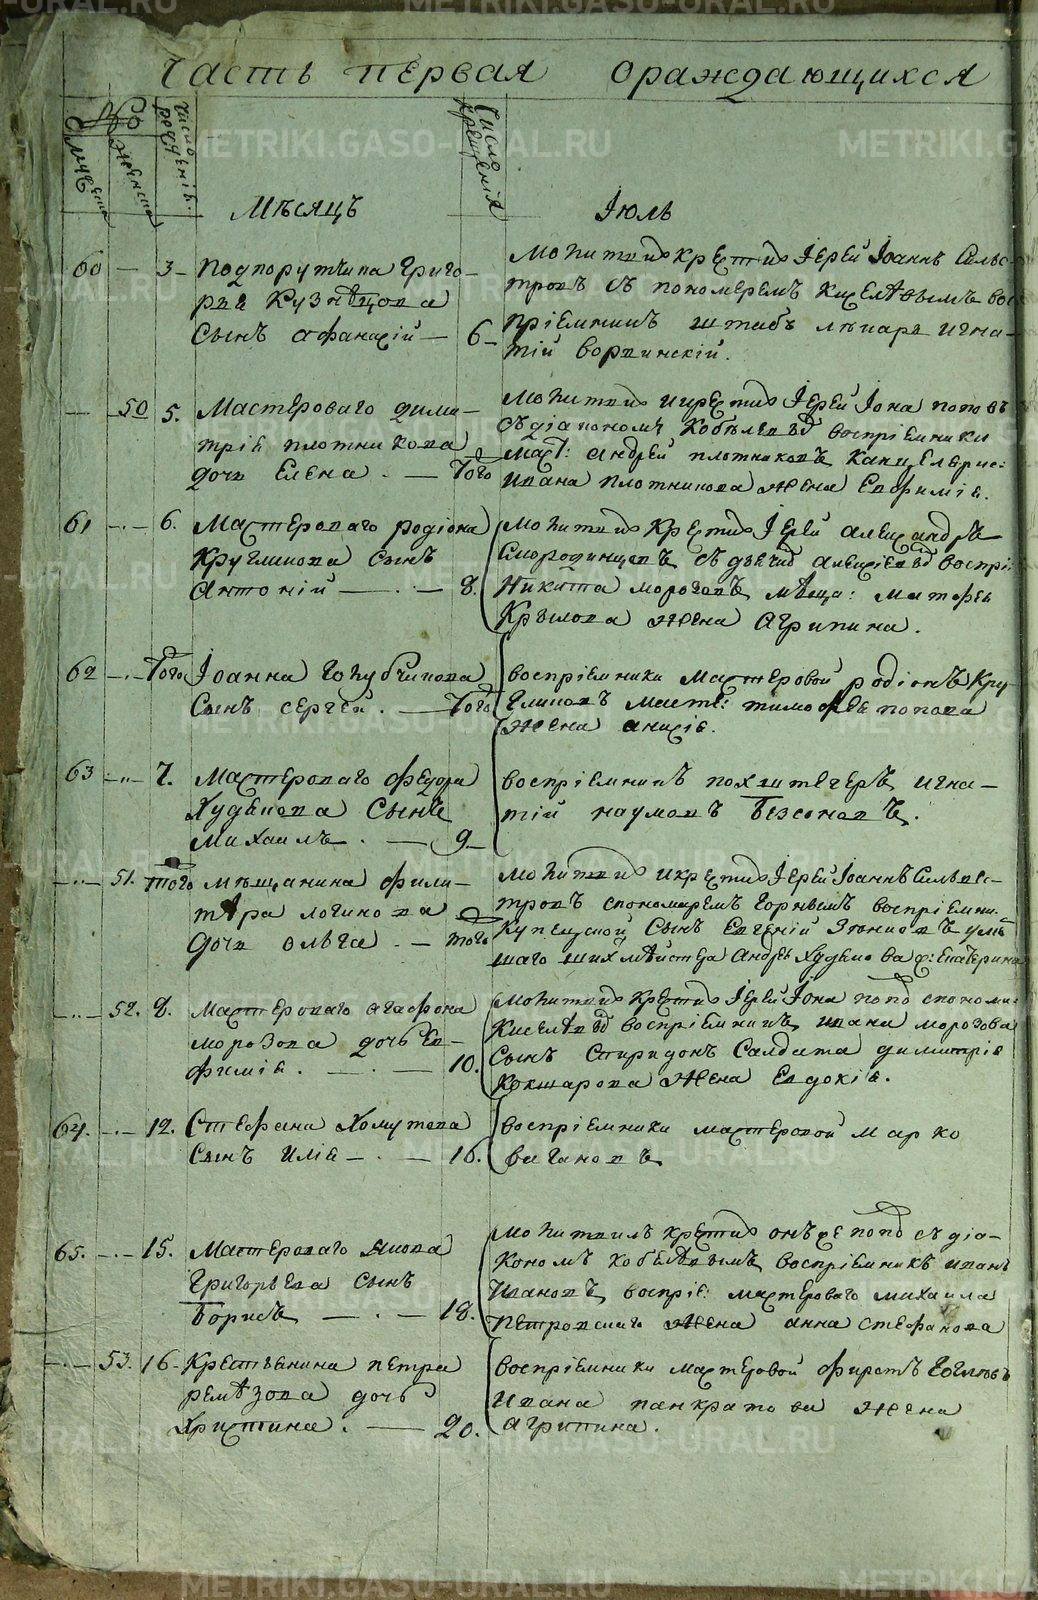 Часть первая ораждающихся
№
Число рожденія.
Число крещенія
Мѣсяцъ Іюль
60 — 3 — Подпоручика Григо-
рья Кузнѣцова
Сынъ Афанасій — 6 —
Молитвил крестил Іерей Іоаннъ Сильв-
тровъ съ пономеремъ Киселѣвымъ вос
пріемникъ штабъ лѣкарь Игна-
тій Ворвинскій.
— 50 5. Мастероваго Дими-
тріе Плотникова
дочь Елена . — Того
Молитвил икрестил Іерей Іона Поповъ
съ діакономъ воспріемники
Маст: Андрей Плотниковъ Канцелярис:
Ивана Плотникова жена Евфиміе.
61 — 6. Мастероваго Родіона
Кругликова Сынъ
Антоній — . — 8.
Молитвил крестил Іерей Александръ
Смородинцевъ съ воспрі:
Никита Морозовъ мѣща: Матфея
Крылова жена Агрипина.
62 — Того Іоанна Голубчикова
Сынъ Сергей . — Того
воспріемники Мастеровой Родіонъ Кру
гликовъ Масте: Тимофея Попова
жена анисіе.
63 — 7. Мастероваго Федора
Худякова Сынъ
Михаилъ . — 9 —
воспріемникъ Игна-
тій Наумовъ Безсоновъ.
— 51. того мѣщанина Фили-
Логинова
дочь Ольга . — того
Молитвил икрестил Іерей Іоаннъ Сильвес-
тровъ спономаремъ Горнымъ воспріемни.
Купецской Сынъ Евгеній
шаго Андрея Худякова Екатерина
— 52. 8. Мастероваго Агафона
Морозова дочь Ев-
фиміе . — . — 10.
Молитвил крестил Іерей Іона Попо спономи:
воспріемникъ Ивана Морозова
Сынъ Спиридонъ Салдата Димитріе
Кокшарова жена Евдокіе.
64. — 12. Стефана Хомутова
Сынъ Иліе — . — 16.
воспріемники мастеровой Марко
Вагановъ
65. — 15. Мастероваго Якова
Григорьева сынъ
Борисъ — . — 18.
Молитвилъ крестил онъ же Попо съ діа-
кономъ воспріемникъ Иванъ
Ивановъ, воспріе: мастероваго Михаила
Петровскаго жена Анна Стефанова
— 53. 16 — Крестьянина Петра
Ремѣзова дочь
Христина . — 20.
воспріемники мастеровой
Ивана Панкратова жена
Агрипина.
METRIKI.GASO-URAL.RU